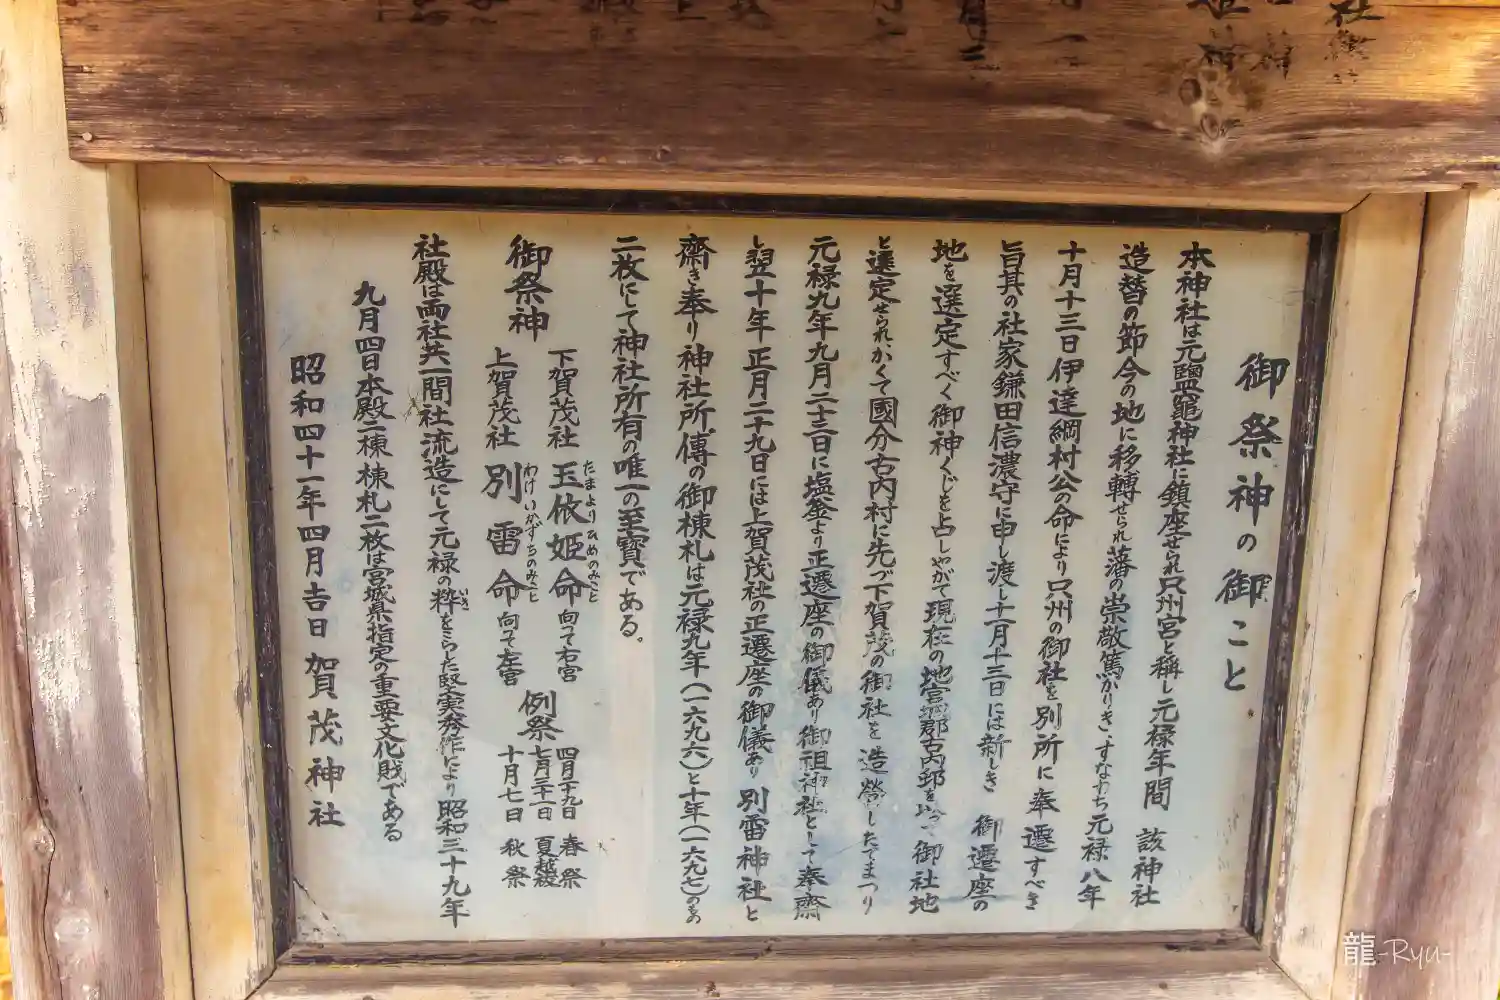 御祭神の御こと
本神社は元鹽竈神社に鎮座せられ只州宮と稱し元禄年間 該神社
造替の節今の地に移轉せられ藩の崇敬篤かりき、すなわち元禄八年
十月十三日伊達綱村公の命により只州の御社を別所に奉遷すべき
旨其の社家鎌田信濃守に申し渡し十一月十三日には新しき 御遷座の
地を選定すべく御神くじを占しやがて現在の地宮城郡古内邨を以って御社地
と選定せられ、かくて國分古内村に先づ下賀茂の御社を造營したてまつり
元禄九年九月二十三日に塩釜より正遷座の御儀あり御祖神社として奉齋
し翌十年正月二十九日には上賀茂社の正遷座の御儀あり別雷神社と
齋き奉り神社所傳の御棟札は元禄九年(一六九六)と十年(一六九七)のもの
二枚にして神社所有の唯一の至寳である。
御祭神
下賀茂社 玉依姫命 向って右宮
たまよりひめのみこと
上賀茂社 別雷命 向って左宮
わけいかずちのみこと
例祭
四月二十九日 春祭
七月三十一日 夏越祓
十月七日 秋祭
社殿は両社共一間社流造にして元禄の粋をこらした堅実秀作により昭和三十九年
九月四日本殿二棟棟札二枚は宮城県指定の重要文化財である
昭和四十一年四月吉日 賀茂神社
龍-Ryu-